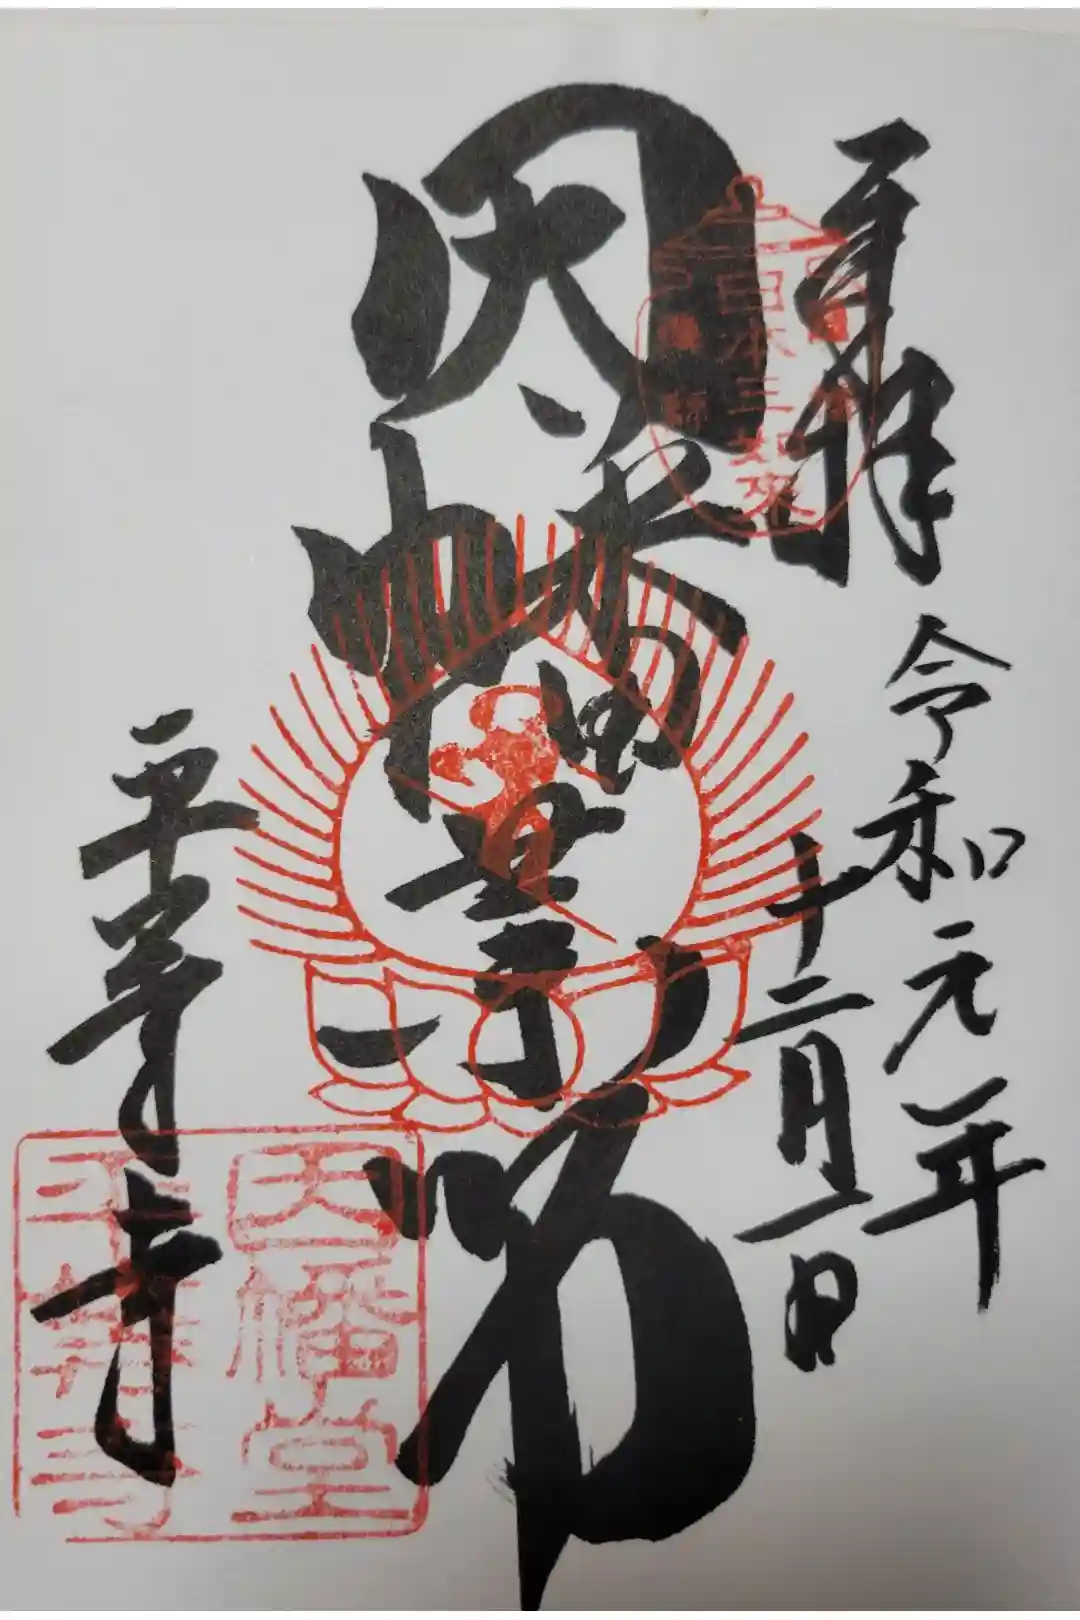 奉拝
令和元年
十二月一日
因幡堂
日本三如来
平等寺
因幡堂
平等寺